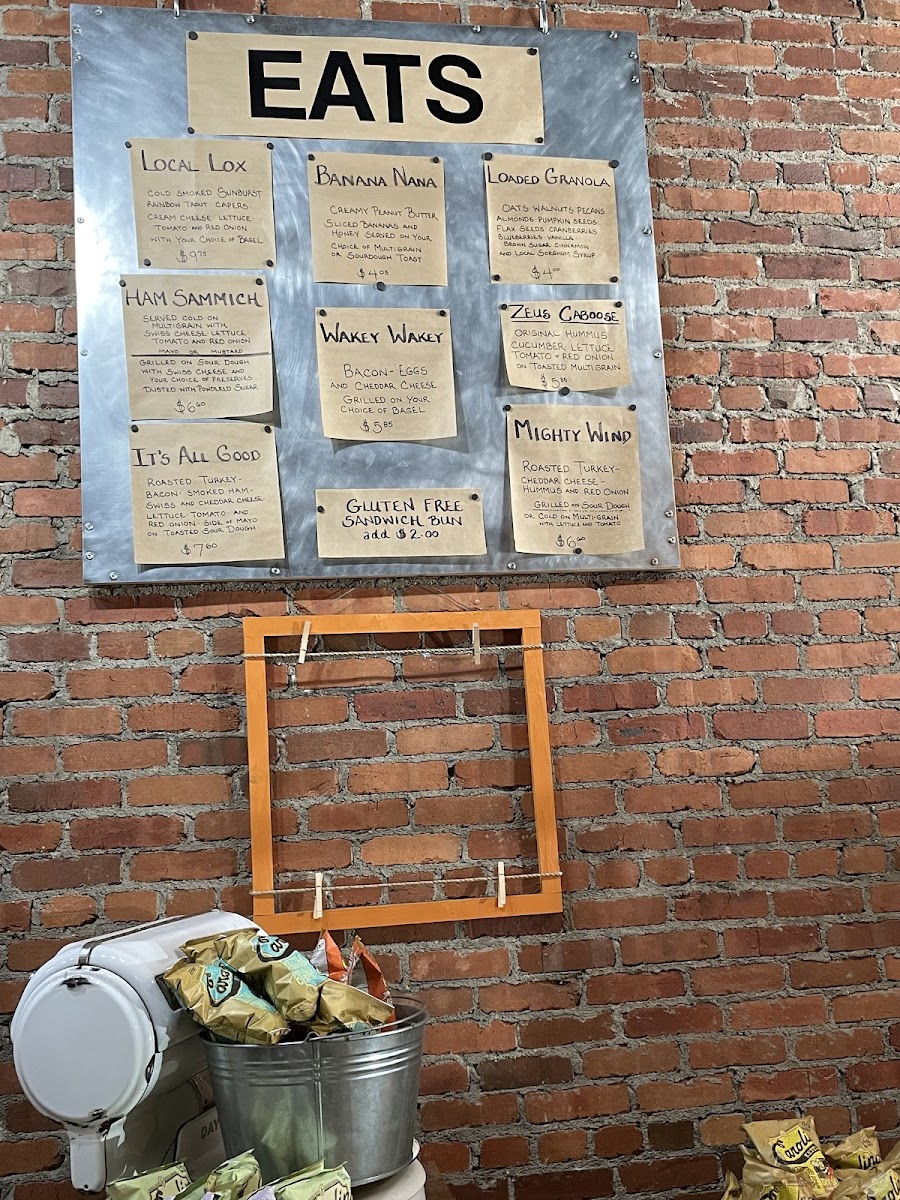 EATS
LOCAL LOX
COLD SMOKED SUNBURST
RAINBOW TROUT CAPERS
CREAM CHEESE LETTUCE
TOMATO AND RED ONION
WITH YOUR CHOICE OF BAGEL
$9.75
HAM SAMMICH
SERVED COLD ON
MULTIGRAIN WITH
SWISS CHEESE LETTUCE
TOMATO AND RED ONION
MAYO OR MUSTARD
GRILLED ON SOUR DOUGH
WITH SWISS CHEESE AND
YOUR CHOICE OF PRESERVES
DUSTED WITH POWDERED SUGAR
$6.60
IT'S ALL GOOD
ROASTED TURKEY-
BACON- SMOKED HAM-
SWISS AND CHEDDAR CHEESE
LETTUCE TOMATO AND
RED ONION SIDE OF MAYO
ON TOASTED SOUR DOUGH
$7.60
BANANA NANA
CREAMY PEANUT BUTTER
SLICED BANANAS AND
HONEY SERVED ON YOUR
CHOICE OF MULTIGRAIN
OR SOURDOUGH TOAST
$4.05
WAKEY WAKEY
BACON-EGGS
AND CHEDDAR CHEESE
GRILLED ON YOUR
CHOICE OF BAGEL
$5.85
GLUTEN FREE
SANDWICH BUN
add $2.00
LOADED GRANOLA
OATS WALNUTS PECANS
ALMONDS PUMPKIN SEEDS
FLAX SEEDS CRANBERRIES
BLUEBERRIES VANILLA
BROWN SUGAR CINNAMON
AND LOCAL SORGHUM SYRUP
$4.00
ZEUS CABOOSE
ORIGINAL HUMMUS
CUCUMBER LETTUCE
TOMATO + RED ONION
ON TOASTED MULTIGRAIN
$5.85
MIGHTY WIND
ROASTED TURKEY-
CHEDDAR CHEESE-
HUMMUS AND RED ONION
GRILLED ON SOUR DOUGH
OR COLD ON MULTI-GRAIN
WITH LETTUCE AND TOMATO
$6.60
DAY